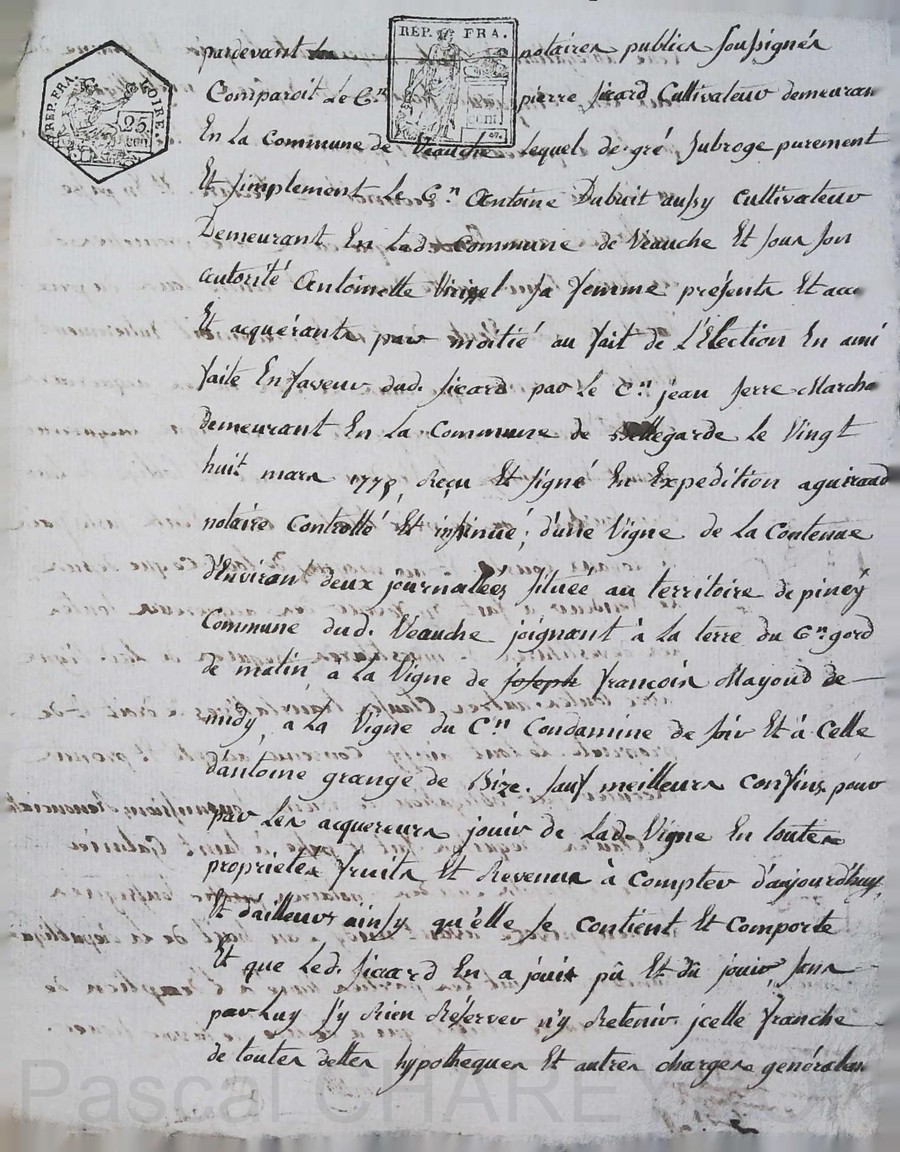 REP. FRA.
REP. FRA. LOIRE.
25 cen
cent
pardevant les notaires publics soussignés
Comparoit Le C.n pierre sicard Cultivateur demeuran
En La Commune de Veauche Lequel de gré subroge purement
Et simplement Le C.n Antoine Dubuit aussy cultivateur
Demeurant En Lad. Commune de Veauche Et sous son
autorité Antoinette sa femme présents Et acc
Et acquérants par moitié au fait de l'Election En ami
faite En faveur dud. sicard par Le C.n jean serre Marcha
demeurant En La Commune de Bellegarde Le Vingt
huit mars 1778, Reçu Et signé En Expedition aguiraud
notaire Controllé Et insinué; d'une Vigne de La Contenue
d'Environ deux journallées située au territoire de piney
Commune dud. Veauche joignant à La terre du C.n gord
de matin, a La Vigne de Joseph françois Mayoud de
midy, a La Vigne du C.n Condamine de soir Et à Celle
d'antoine grange de Bize. sauf meilleurs Confins, pour
par Les acquereurs jouir de Lad. Vigne En toutes
proprietés fruits Et Revenus à Compter d'aujourd'huy,
Et d'ailleurs ainsy qu'elle se Contient Et Comporte
Et que Led. sicard En a jouit pû Et dû jouir, sans
par Luy s'y Rien Réserver n'y Retenir. icelle franche
de toutes dettes hypotheques Et autres charges générales
Pascal CHAREY